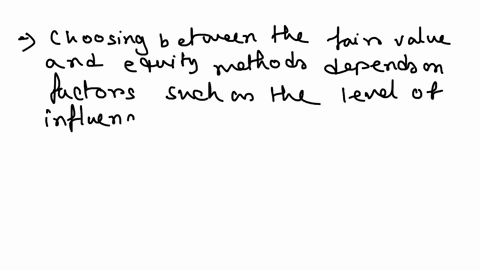 → Choosing between the fair value
and equity methods depends on
factors such as the level of
influen